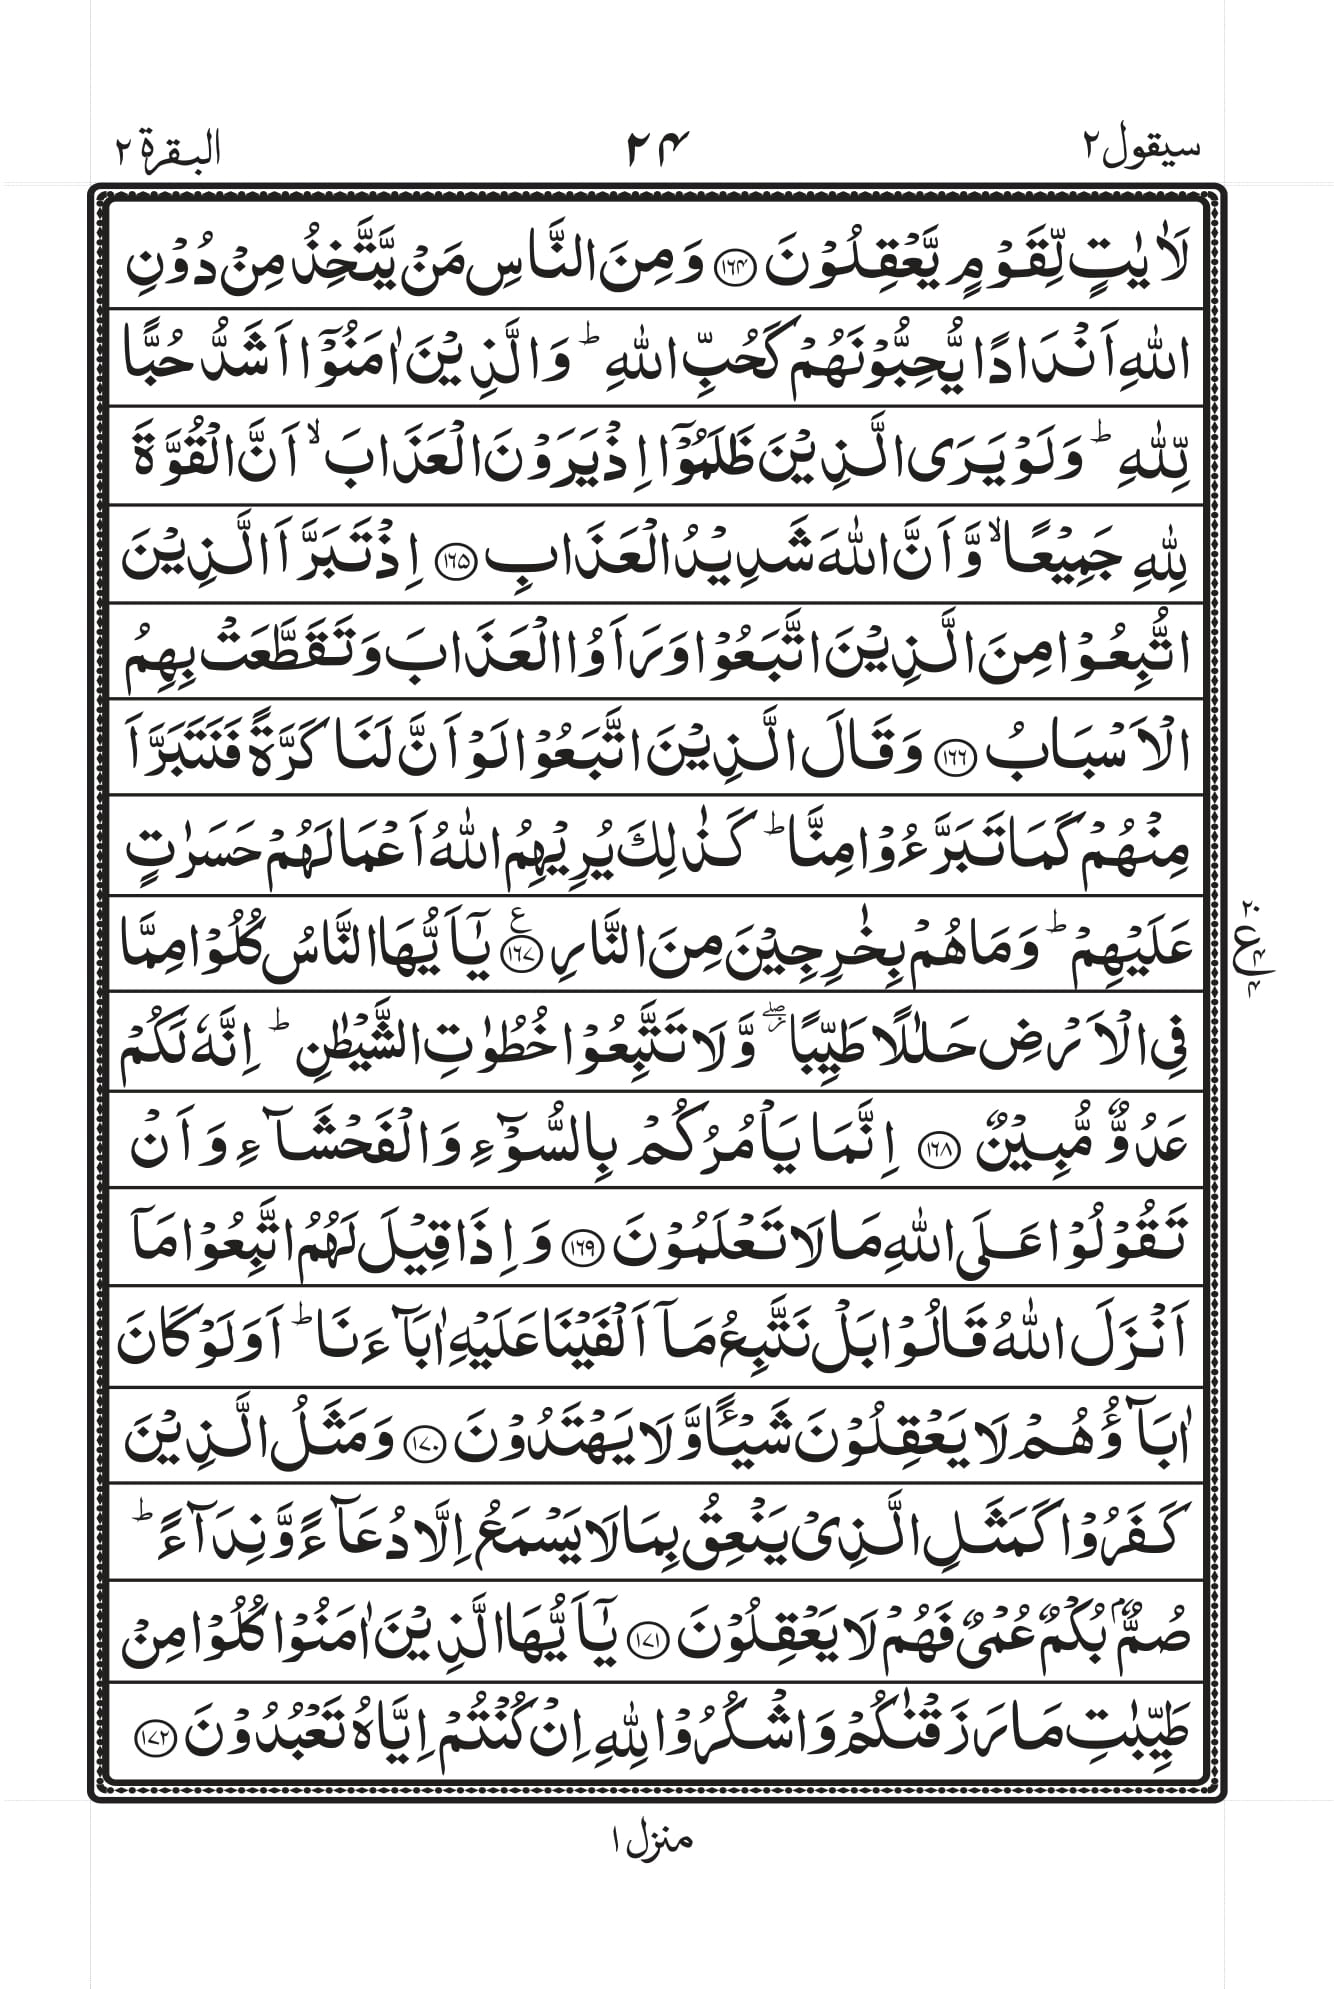 سيقول ٢
٢۴
البقرة ٢
لَاٰيٰتٍ لِّقَوْمٍ يَّعْقِلُوْنَ ﴿۱۶۴﴾ وَمِنَ النَّاسِ مَنْ يَّتَّخِذُ مِنْ دُوْنِ
اللّٰهِ اَنْدَادًا يُّحِبُّوْنَهُمْ كَحُبِّ اللّٰهِ ؕ وَالَّذِيْنَ اٰمَنُوْۤا اَشَدُّ حُبًّا
لِّلّٰهِ ؕ وَلَوْ يَرَى الَّذِيْنَ ظَلَمُوْۤا اِذْ يَرَوْنَ الْعَذَابَ ۙ اَنَّ الْقُوَّةَ
لِلّٰهِ جَمِيْعًا ۙ وَّاَنَّ اللّٰهَ شَدِيْدُ الْعَذَابِ ﴿۱۶۵﴾ اِذْ تَبَرَّاَ الَّذِيْنَ
اتُّبِعُوْا مِنَ الَّذِيْنَ اتَّبَعُوْا وَرَاَوُا الْعَذَابَ وَتَقَطَّعَتْ بِهِمُ
الْاَسْبَابُ ﴿۱۶۶﴾ وَقَالَ الَّذِيْنَ اتَّبَعُوْا لَوْ اَنَّ لَنَا كَرَّةً فَنَتَبَرَّاَ
مِنْهُمْ كَمَا تَبَرَّءُوْا مِنَّا ؕ كَذٰلِكَ يُرِيْهِمُ اللّٰهُ اَعْمَالَهُمْ حَسَرٰتٍ
عَلَيْهِمْ ؕ وَمَا هُمْ بِخٰرِجِيْنَ مِنَ النَّارِ ﴿۱۶۷﴾ ع يٰۤاَيُّهَا النَّاسُ كُلُوْا مِمَّا
٢٠ ع ۴ ۴
فِى الْاَرْضِ حَلٰلًا طَيِّبًا ۖؗ وَّلَا تَتَّبِعُوْا خُطُوٰتِ الشَّيْطٰنِ ؕ اِنَّهٗ لَكُمْ
عَدُوٌّ مُّبِيْنٌ ﴿۱۶۸﴾ اِنَّمَا يَاْمُرُكُمْ بِالسُّوْٓءِ وَالْفَحْشَآءِ وَاَنْ
تَقُوْلُوْا عَلَى اللّٰهِ مَا لَا تَعْلَمُوْنَ ﴿۱۶۹﴾ وَاِذَا قِيْلَ لَهُمُ اتَّبِعُوْا مَاۤ
اَنْزَلَ اللّٰهُ قَالُوْا بَلْ نَتَّبِعُ مَاۤ اَلْفَيْنَا عَلَيْهِ اٰبَآءَنَا ؕ اَوَلَوْ كَانَ
اٰبَآؤُهُمْ لَا يَعْقِلُوْنَ شَيْـًٔا وَّلَا يَهْتَدُوْنَ ﴿۱۷۰﴾ وَمَثَلُ الَّذِيْنَ
كَفَرُوْا كَمَثَلِ الَّذِىْ يَنْعِقُ بِمَا لَا يَسْمَعُ اِلَّا دُعَآءً وَّنِدَآءً ؕ
صُمٌّۢ بُكْمٌ عُمْىٌ فَهُمْ لَا يَعْقِلُوْنَ ﴿۱۷۱﴾ يٰۤاَيُّهَا الَّذِيْنَ اٰمَنُوْا كُلُوْا مِنْ
طَيِّبٰتِ مَا رَزَقْنٰكُمْ وَاشْكُرُوْا لِلّٰهِ اِنْ كُنْتُمْ اِيَّاهُ تَعْبُدُوْنَ ﴿۱۷۲﴾
منزل ١